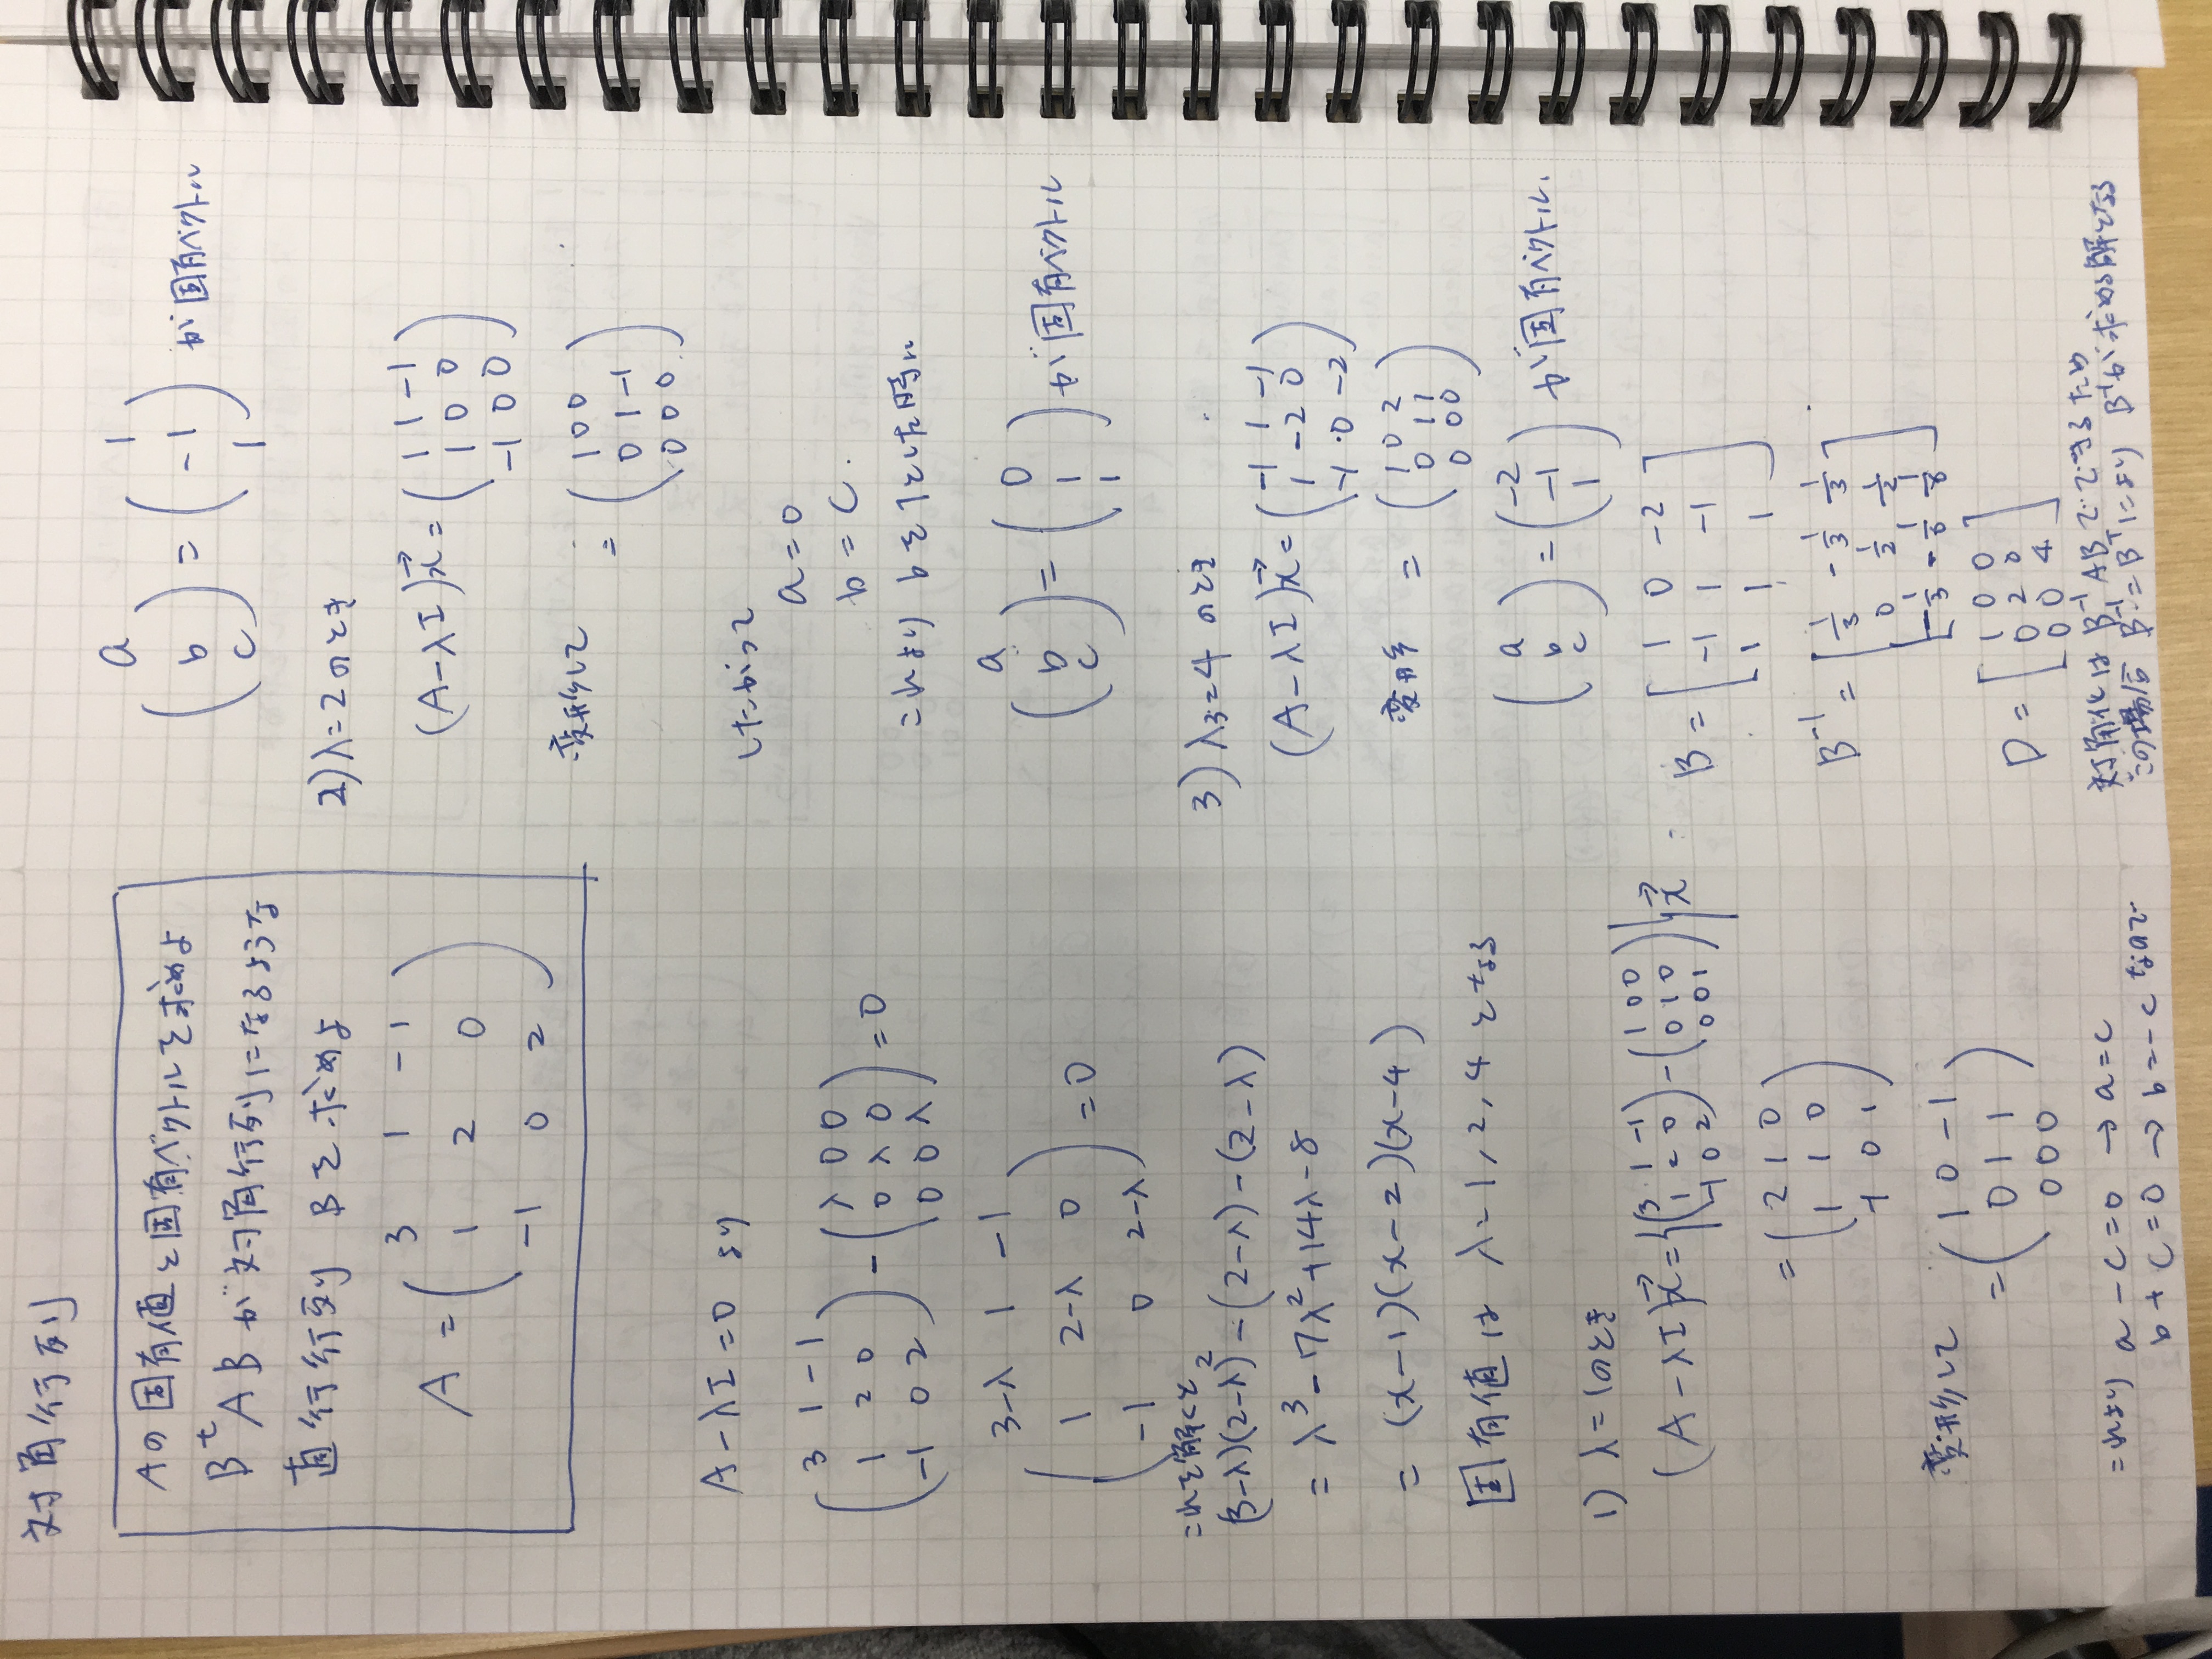 対角行列
Aの固有値と固有ベクトルを求めよ
B^t A B が対角行列になるような
直行行列 Bを求めよ
A = ( 3 1 -1
1 2 0
-1 0 2 )
A - λI = 0 より
( 3 1 -1
1 2 0
-1 0 2 ) - ( λ 0 0
0 λ 0
0 0 λ ) = 0
( 3-λ 1 -1
1 2-λ 0
-1 0 2-λ ) = 0
これを解くと
(3-λ)(2-λ)^2 - (2-λ) - (2-λ)
= λ^3 - 7λ^2 + 14λ - 8
= (x-1)(x-2)(x-4)
固有値は λ=1, 2, 4 となる
1) λ=1のとき
(A-λI)x→ = {( 3 1 -1
1 2 0
-1 0 2 ) - ( 1 0 0
0 1 0
0 0 1 )} x→
= ( 2 1 0
1 1 0
-1 0 1 )
変形して
= ( 1 0 -1
0 1 1
0 0 0 )
これより a - c = 0 → a = c
b + c = 0 → b = -c なので
( a
b
c ) = ( 1
-1
1 ) が固有ベクトル
2) λ=2 のとき
(A-λI)x→ = ( 1 1 -1
1 0 0
-1 0 0 )
変形して = ( 1 0 0
0 1 -1
0 0 0 )
したがって
a = 0
b = c.
これより bを1とした時に
( a
b
c ) = ( 0
1
1 ) が固有ベクトル
3) λ3=4 のとき
(A-λI)x→ = ( -1 1 -1
1 -2 0
-1 0 -2 )
変形 = ( 1 0 2
0 1 1
0 0 0 )
( a
b
c ) = ( -2
-1
1 ) が固有ベクトル.
B = [ 1 0 -2
-1 1 -1
1 1 1 ]
B^-1 = [ 1/3 -1/3 1/3
0 1/2 1/2
-1/3 -1/6 1/6 ]
D = [ 1 0 0
0 2 0
0 0 4 ]
対角化は B^-1 AB でできるため
この場合 B^-1 = B^T により が求める解となる